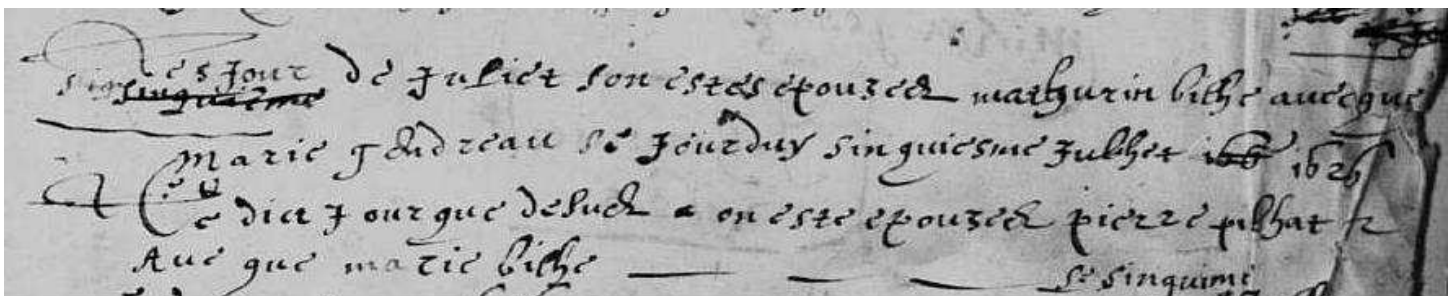 es Jour de Juliet son estes epouzees mathurin bithe avecque
Marie gendreau se Jourduy sinquiesme Julhet 1626
Ce dict Jour que desus on este epouzees pierre pilhat
Aue que marie bithe
se sinquime